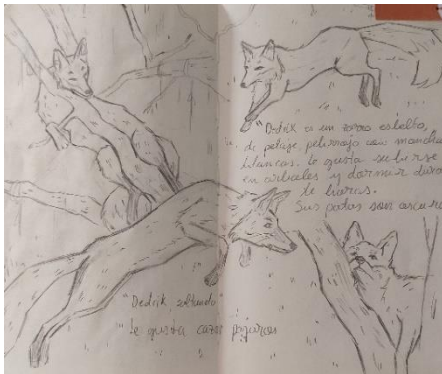 "Dedrik es un zorro esbelto,
de pelaje pelirrojo con manchas
blancas. le gusta subirse
en arboles y dormir
horas.
Sus patas son oscuras
"Dedrik saltando"
le gusta cazar pajaros